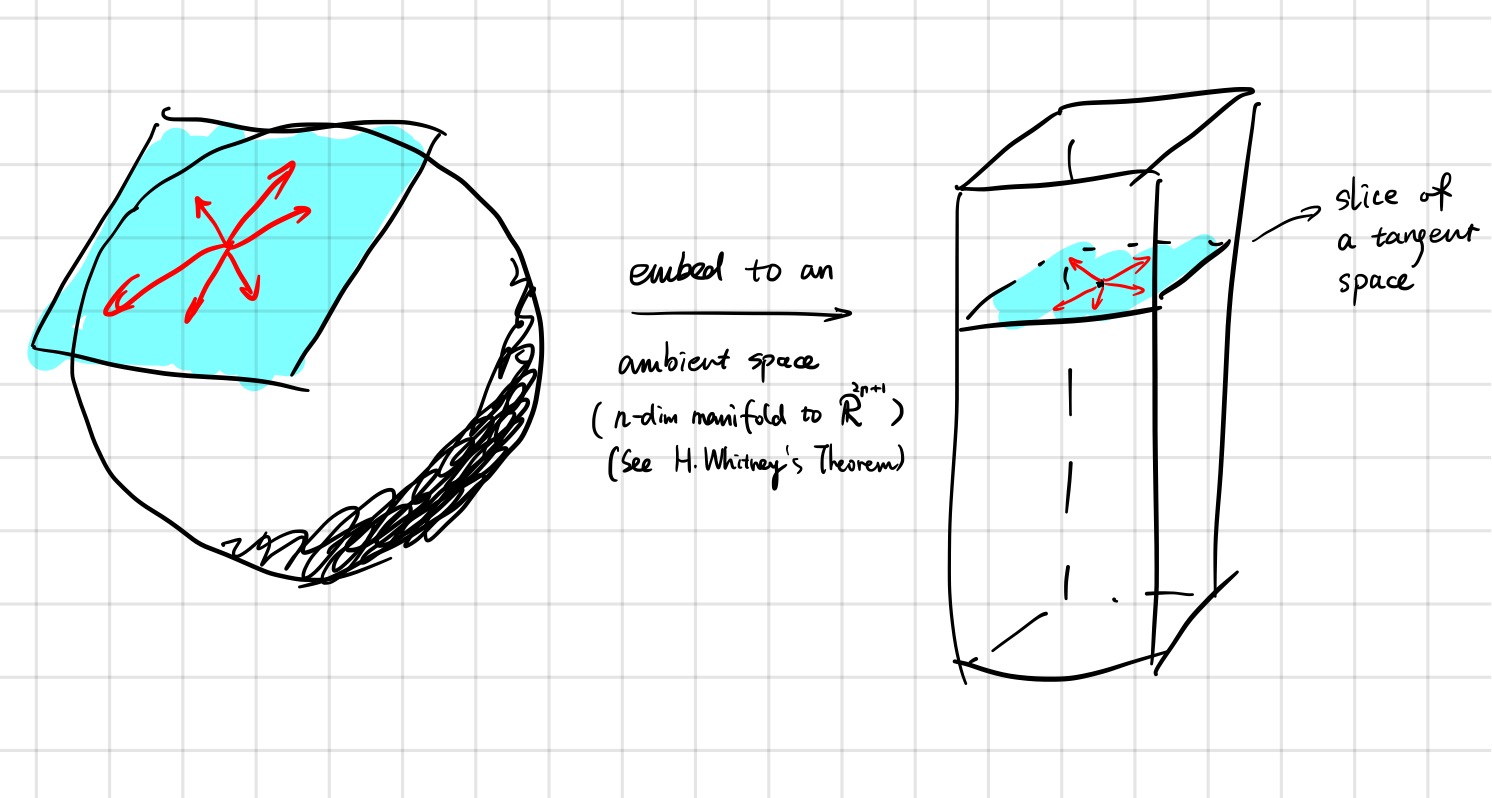 embed to an
ambient space
(n-dim manifold to ℝ²ⁿ⁺¹)
(See H.Whitney's Theorem)
slice of
a tangent
space